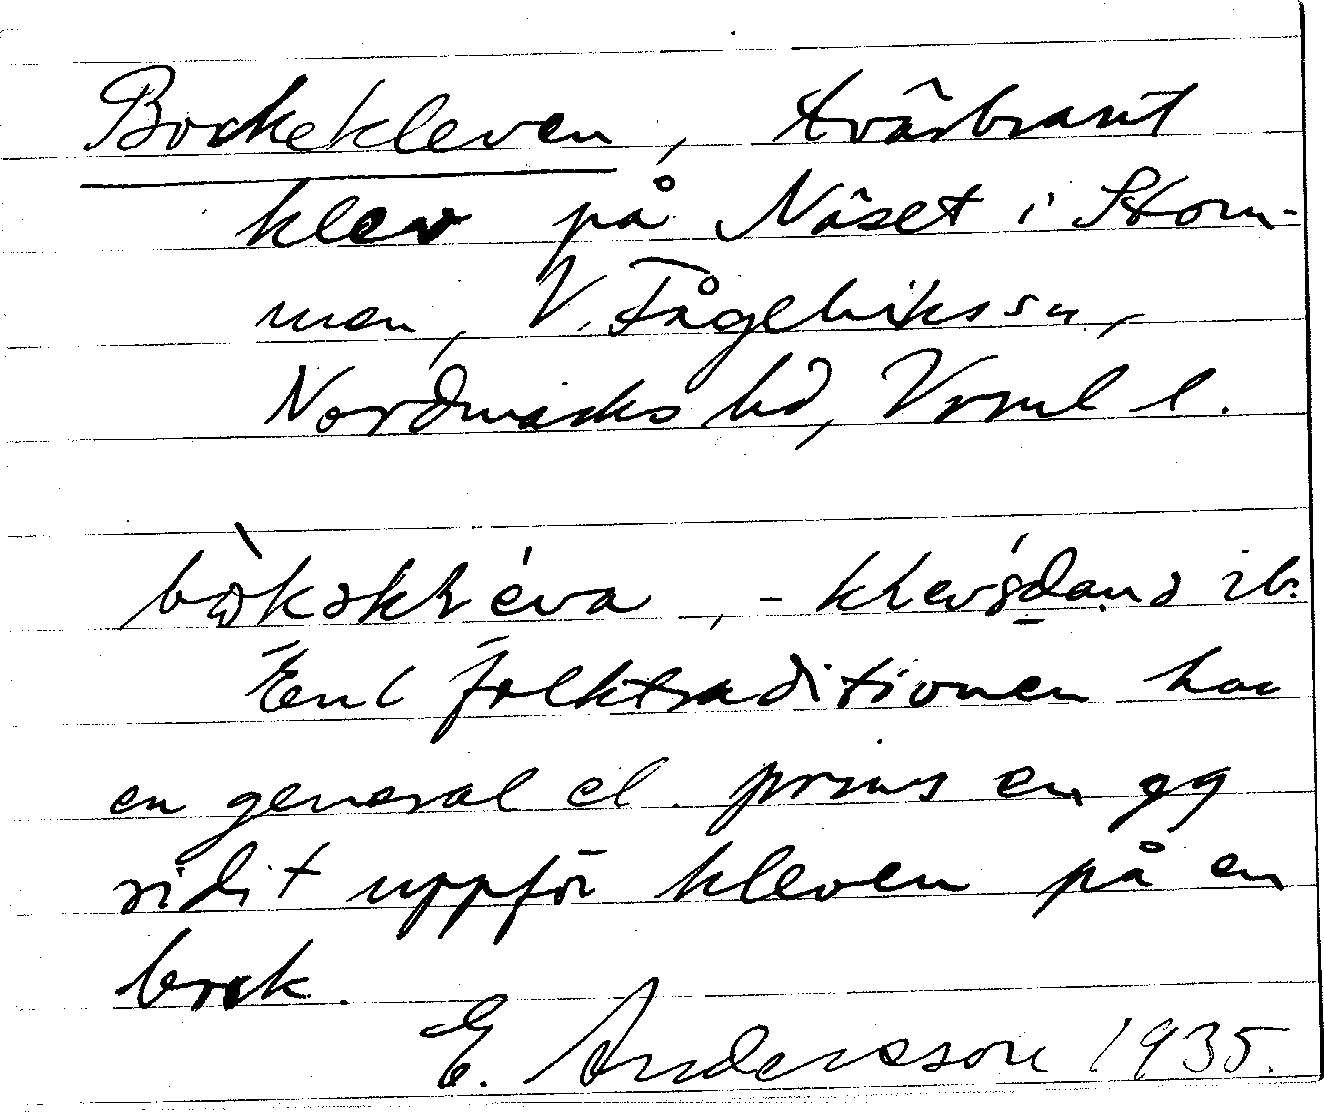 Bockekleven, tvärbrant
klev på Näset i Stom-
men, V. Fågelvikssn,
Nordmarks hd, Vrml l.
Enl folktraditionen har
en general el. prins en gg
ridit uppför kleven på en
bock.
E. Andersson 1935.